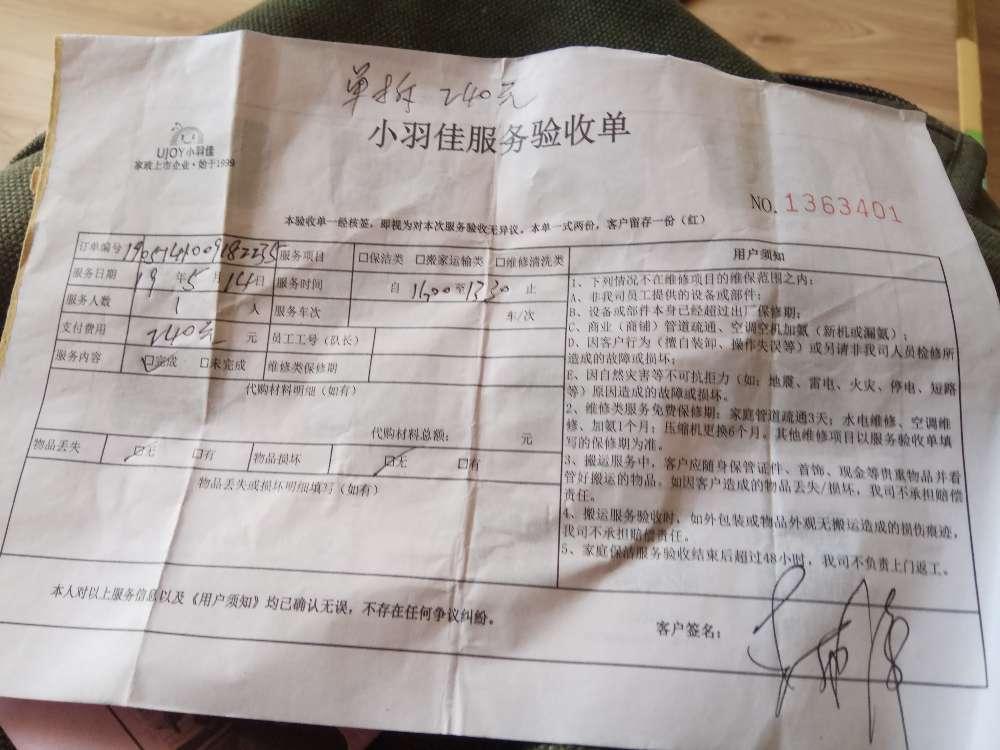 单拆 240元
小羽佳服务验收单
UJOY小羽佳
家政上市企业·始于1999
NO. 1363401
本验收单一经核签，即视为对本次服务验收无异议。本单一式两份，客户留存一份（红）
订单编号 服务项目 □保洁类 □搬家运输类 □维修清洗类
服务日期 19 年 5 月 14 日 服务时间 自 至 13:30 止
服务人数 1 人 服务车次 车/次
支付费用 240元 元 员工工号（队长）
服务内容 □完成 □未完成 维修类保修期
代购材料明细（如有）
代购材料总额： 元
物品丢失 □无 □有 物品损坏 □无 □有
物品丢失或损坏明细填写（如有）
用户须知
1、下列情况不在维修项目的维保范围之内：
A、非我司员工提供的设备或部件；
B、设备或部件本身已经超过出厂保修期；
C、商业（商铺）管道疏通、空调空机加氨（新机或漏氨）；
D、因客户行为（擅自装卸、操作失误等）或另请非我司人员检修所
造成的故障或损坏；
E、因自然灾害等不可抗拒力（如：地震、雷电、火灾、停电、短路
等）原因造成的故障或损坏。
2、维修类服务免费保修期：家庭管道疏通3天；水电维修、空调维
修、加氨1个月；压缩机更换6个月。其他维修项目以服务验收单填
写的保修期为准。
3、搬运服务中，客户应随身保管证件、首饰、现金等贵重物品并看
管好搬运的物品。如因客户造成的物品丢失/损坏，我司不承担赔偿
责任。
4、搬运服务验收时，如外包装或物品外观无搬运造成的损伤痕迹，
我司不承担赔偿责任。
5、家庭保洁服务验收结束后超过48小时，我司不负责上门返工。
本人对以上服务信息以及《用户须知》均已确认无误，不存在任何争议纠纷。
客户签名：